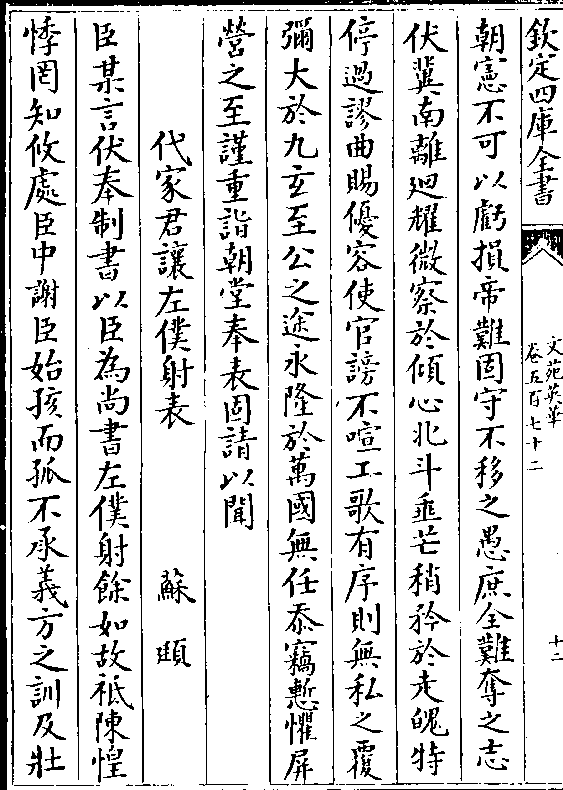 欽定四庫全書
文苑英華
卷五百七十二
十二
朝憲不可以虧損帝難固守不移之愚庶全難奪之志
伏冀南離迴耀微察於傾心北斗垂芒稍矜於走魄特
停過謬曲賜優容使官謗不喧工歌有序則無私之覆
彌大於九玄至公之途永隆於萬國無任忝竊慙懼屏
營之至謹重詣朝堂奉表固請以聞
代家君讓左僕射表 蘇頲
臣某言伏奉制書以臣為尚書左僕射餘如故祗陳惶
悸罔知攸處臣中謝臣始孩而孤不承義方之訓及壯